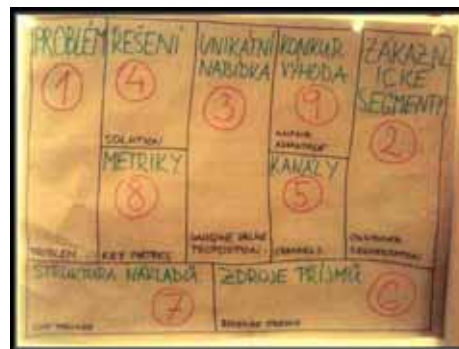 PROBLÉM
1
PROBLEM
ŘEŠENÍ
4
SOLUTION
METRIKY
8
KEY METRICS
UNIKÁTNÍ
NABÍDKA
3
UNIQUE VALUE
PROPOSITION
KONKUR.
VÝHODA
9
UNFAIR
ADVANTAGE
KANÁLY
5
CHANNELS
ZÁKAZN
ICKÉ
SEGMENTY
2
CUSTOMER
STRUKTURA NÁKLADŮ
7
ZDROJE PŘÍJMŮ
6
REVENUE STREAMS